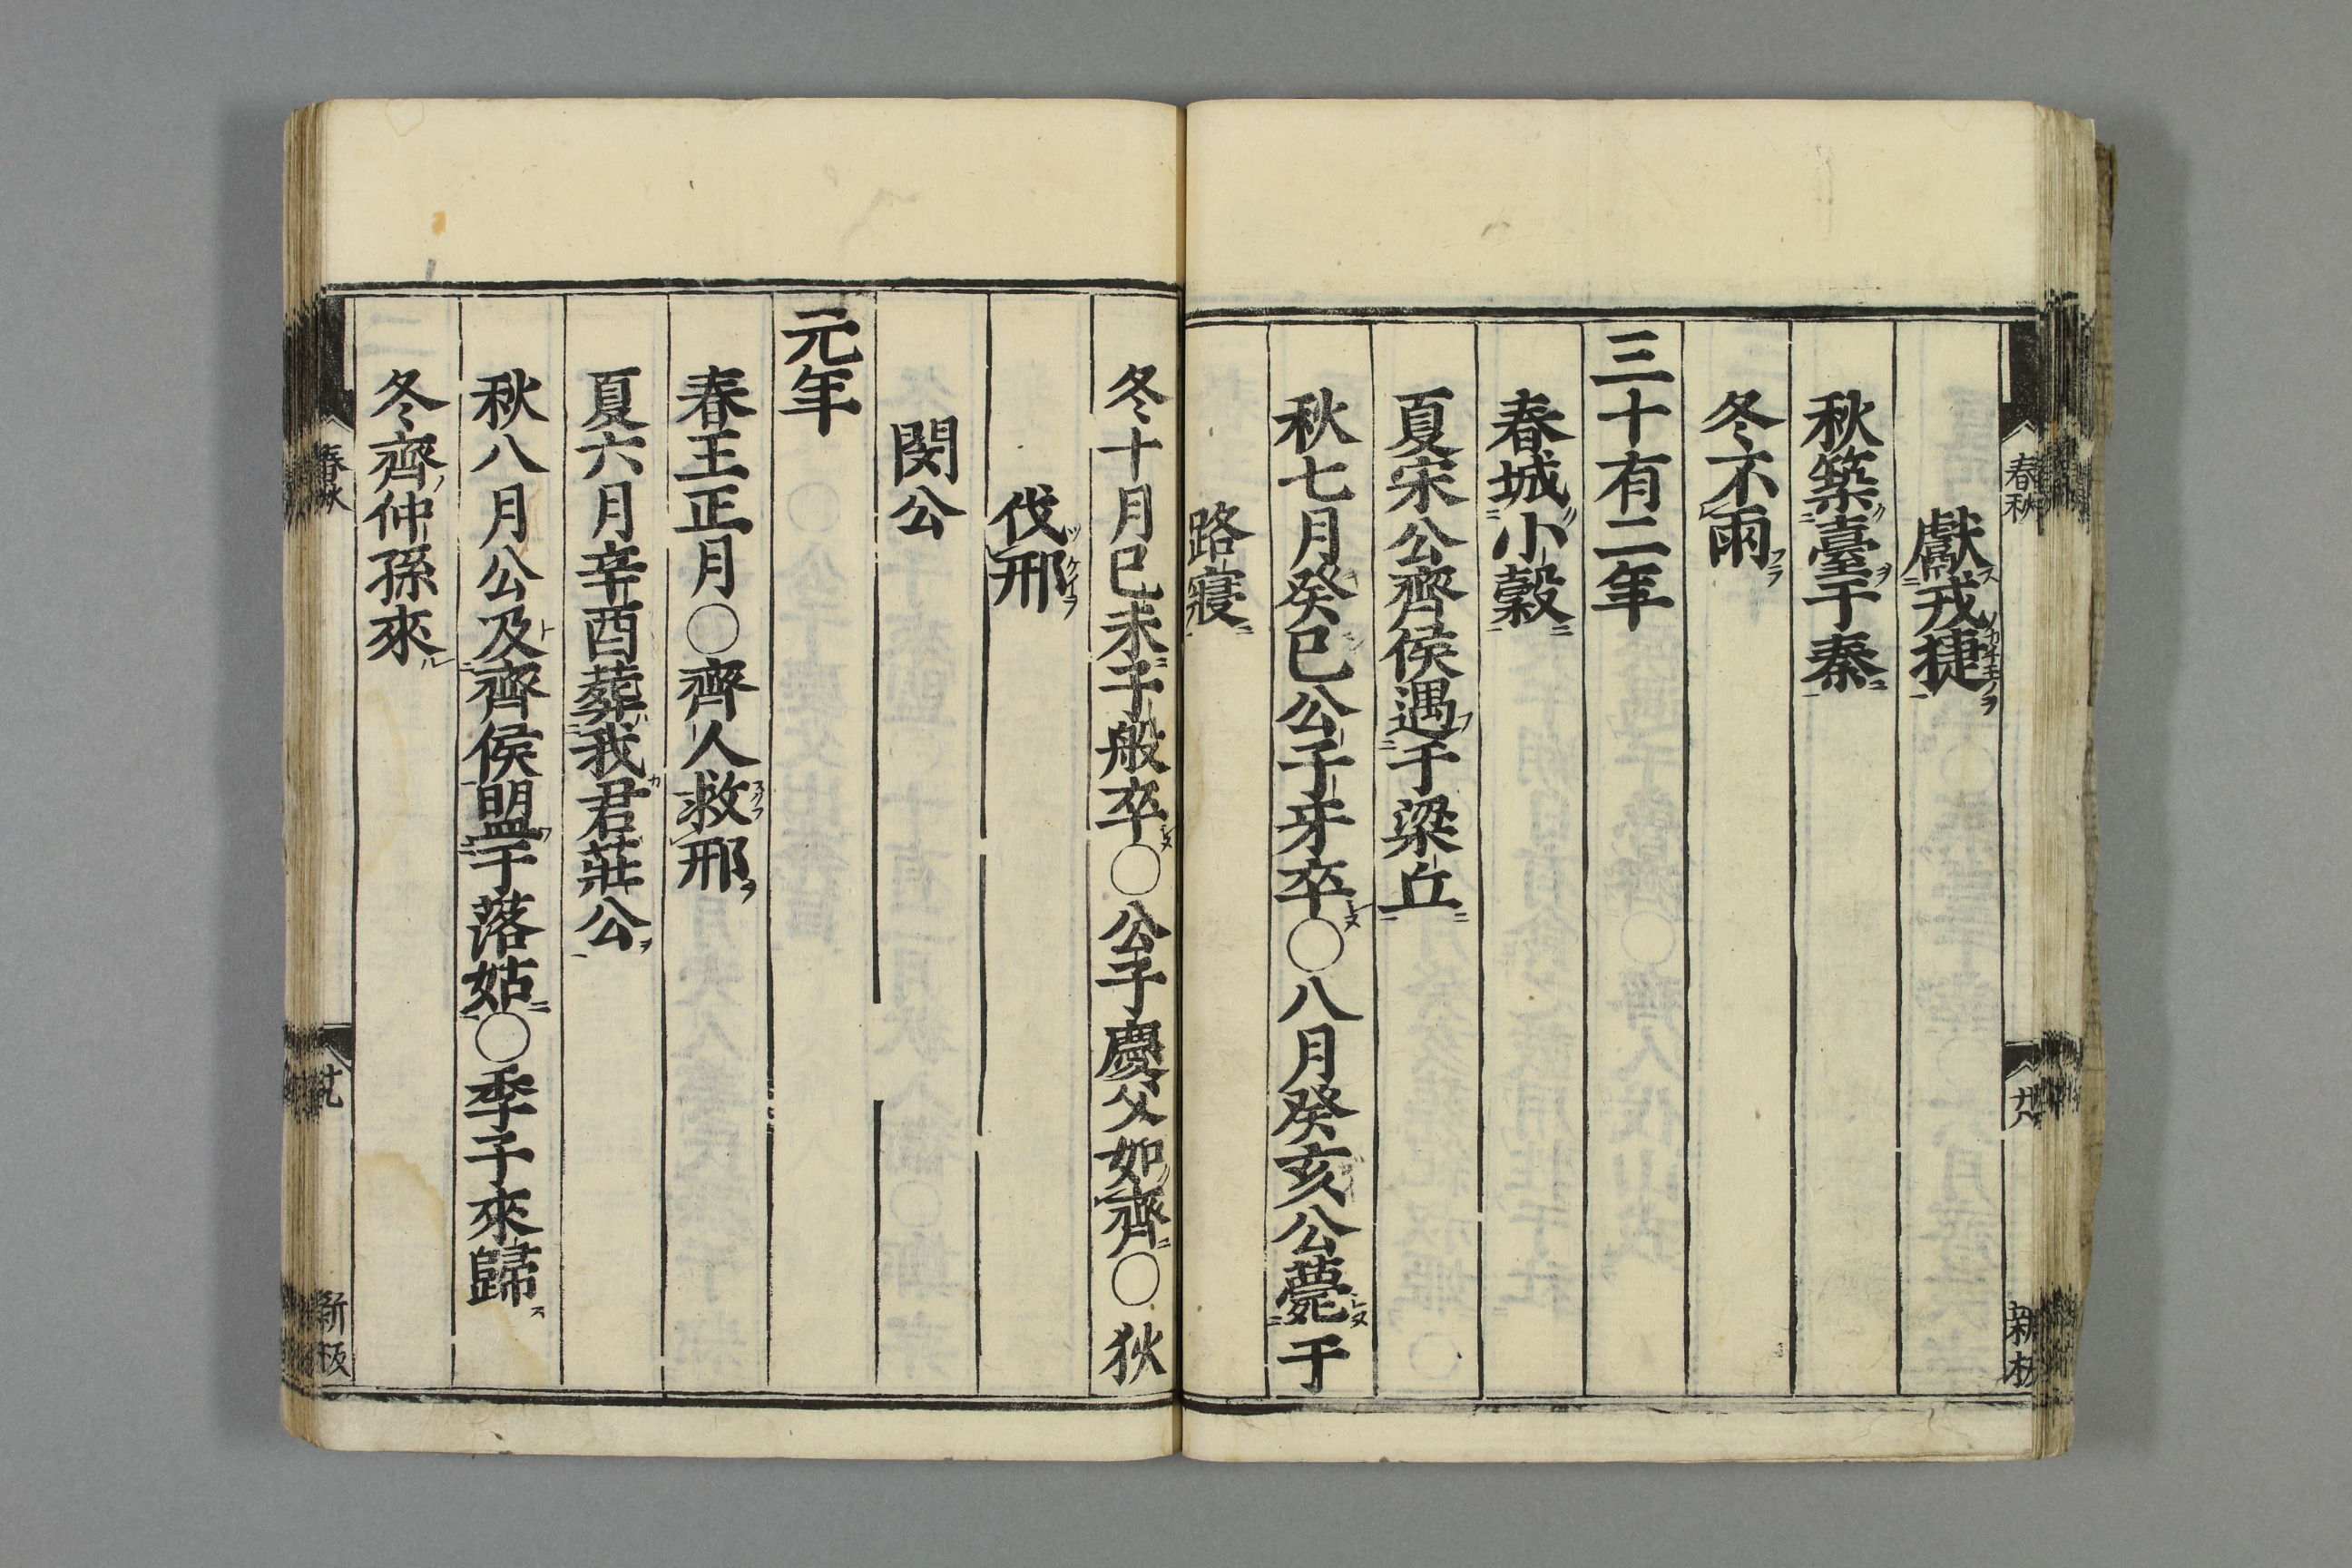 春秋
廿八
新板
獻戎捷
秋築臺于秦
冬不雨
三十有二年
春城小穀
夏宋公齊侯遇于梁丘
秋七月癸巳公子牙卒○八月癸亥公薨于
路寢
冬十月巳未子般卒○公子慶父如齊○狄
伐邢
閔公
元年
春王正月○齊人救邢
夏六月辛酉葬我君莊公
秋八月公及齊侯盟于落姑○季子來歸
冬齊仲孫來
春秋
廿九
新板